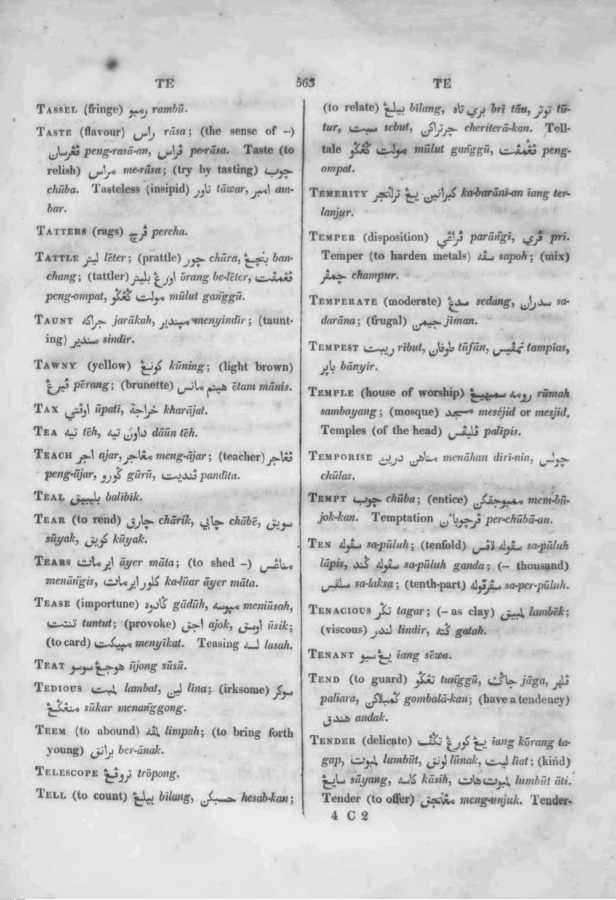 TE 563 TE
TASSEL (fringe) رمبو rambū.
TASTE (flavour) راس rāsa; (the sense of –)
peng-rasā-an, فراس pe-rāsa. Taste (to
relish) مراس me-rāsa; (try by tasting) چوب
chūba. Tasteless (insipid) تاور tāwar, امبر am-
bar.
TATTERS (rags) فرچ percha.
TATTLE ليتر lēter; (prattle) چور chūra, بنچڠ ban-
chang; (tattler) اورڠ بليتر ōrang be-lēter,
peng-ompat, مولت ڬڠڬو mūlut ganggū.
TAUNT جراكه jarākah, ميندير menyindir; (taunt-
ing) سندير sindir.
TAWNY (yellow) كونڠ kūning; (light brown)
فيرڠ pērang; (brunette) هيتم مانس ētam mānis.
TAX اوفتي ūpati, خراجة kharājat.
TEA تيه tēh, داون تيه dāūn tēh.
TEACH اجر ajar, مڠاجر meng-ājar; (teacher) فڠاجر
peng-ājar, ڬورو gūrū, فنديت pandita.
TEAL بليبيق balibik.
TEAR (to rend) چارق chārik, چابي chābē, سويق
sūyak, كويق kūyak.
TEARS اير مات āyer māta; (to shed –) مناڠس
menāngis, كلور اير مات ka-lūar āyer māta.
TEASE (importune) ڬادوه gādūh, ميوسه meniūsah,
تنتت tuntut; (provoke) اجق ajok, اوسق ūsik;
(to card) ميكت menyikat. Teasing لسه lasah.
TEAT هوجڠ سوسو ūjong sūsū.
TEDIOUS لمبت lambat, لين lina; (irksome) سوكر
sūkar menanggong.
TEEM (to abound) لمفه limpah; (to bring forth
young) برانق ber-ānak.
TELESCOPE تروفڠ trōpong.
TELL (to count) بيلڠ bilang, حسبكن hesab-kan;
(to relate) بيلڠ bilang, بري تاه brī tāu, توتر tū-
tur, سبت sebut, چرتراكن cheriterā-kan. Tell-
tale مولت ڬڠڬو mūlut ganggū, peng-
ompat.
TEMERITY كبرانين يڠ ترلنجر ka-barānī-an iang ter-
lanjur.
TEMPER (disposition) فراڠي parāngī, فري pri.
Temper (to harden metals) سفه sapoh; (mix)
چمفر champur.
TEMPERATE (moderate) سدڠ sedang, سدران sa-
darāna; (frugal) جيمن jiman.
TEMPEST ريبت ribut, طوفان tūfūn, تمفيس tampias,
باير bānyir.
TEMPLE (house of worship) رومه سمبهيڠ rūmah
sambayang; (mosque) مسجد meséjid or mesjid.
Temples (of the head) فليفس palipis.
TEMPORISE مناهن درين menāhan diri-nia, چولس
chūlar.
TEMPT چوب chūba; (entice) ممبوجقكن mem-bū-
jok-kan. Temptation فرچوباءن per-chūbā-an.
TEN سفوله sa-pūluh; (tenfold) سفوله لافس sa-pūluh
lāpis, سفوله ڬند sa-pūluh ganda; (– thousand)
سلقس sa-laksa; (tenth-part) سفرفوله sa-per-pūluh.
TENACIOUS تڬر tagar; (– as clay) لمبيق lambēk;
(viscous) لندر lindir, ڬته gatah.
TENANT يڠ سيو iang sēwa.
TEND (to guard) تڠڬو tunggū, جاڬ jāga,
paliara, ڬمبلاكن gombalā-kan; (have a tendency)
هندق andak.
TENDER (delicate) يڠ كورڠ تڬف iang kōrang ta-
gap, لمبوت lumbūt, لونق lūnak, ليت liat; (kind)
سايڠ sāyang, كاسه kāsih, لمبوت هات lumbūt āti.
Tender (to offer) مڠنجق meng-unjuk. Tender-
4 C 2